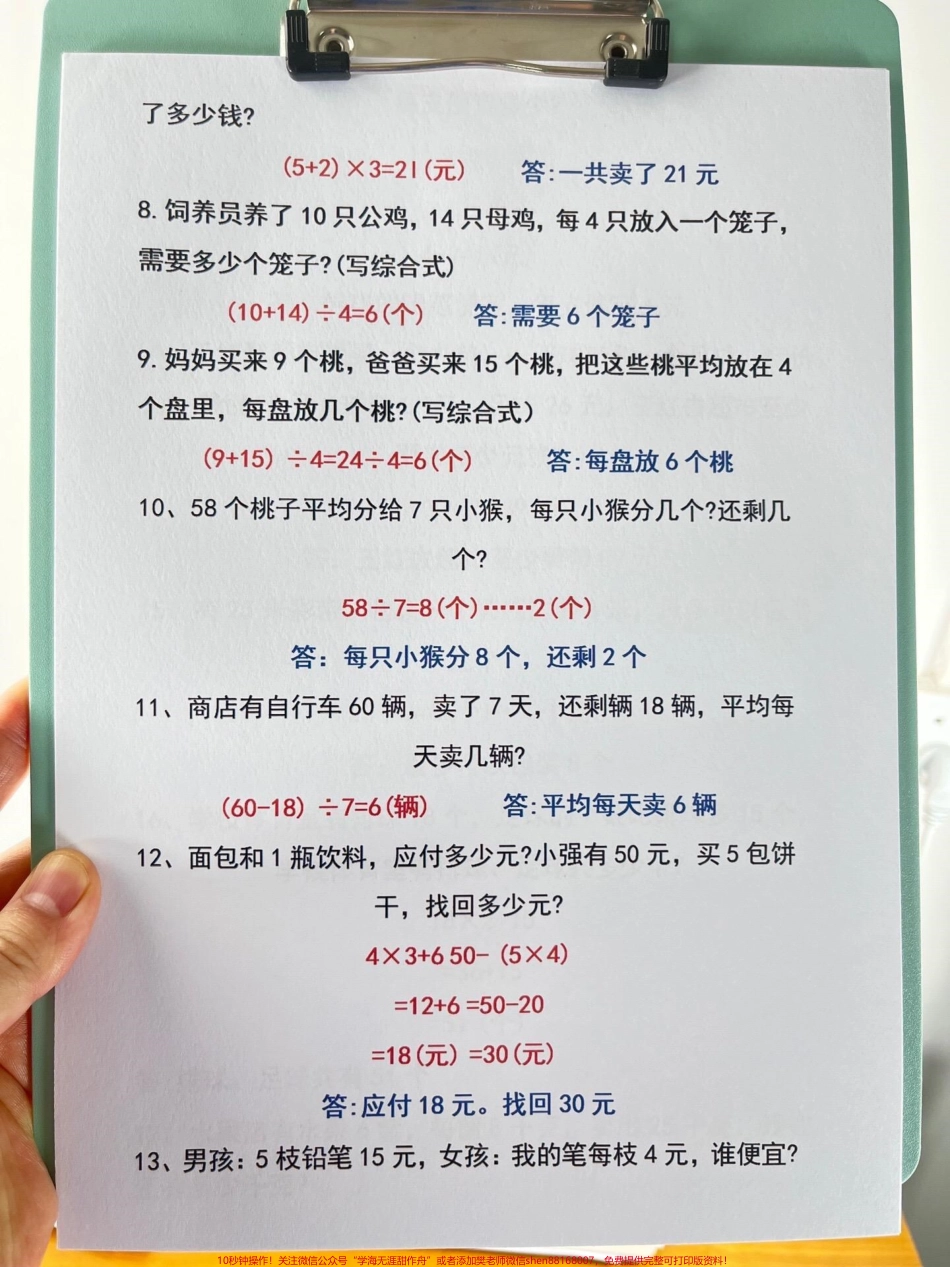 了多少钱?
(5+2)×3=21(元) 答:一共卖了 21 元
8. 饲养员养了 10 只公鸡，14 只母鸡，每 4 只放入一个笼子，
需要多少个笼子?(写综合式)
(10+14)÷4=6(个) 答:需要 6 个笼子
9. 妈妈买来 9 个桃，爸爸买来 15 个桃，把这些桃平均放在 4
个盘里，每盘放几个桃?(写综合式)
(9+15) ÷4=24÷4=6(个) 答:每盘放 6 个桃
10、58 个桃子平均分给 7 只小猴，每只小猴分几个?还剩几
个?
58÷7=8(个)……2(个)
答：每只小猴分 8 个，还剩 2 个
11、商店有自行车 60 辆，卖了 7 天，还剩辆 18 辆，平均每
天卖几辆?
(60-18) ÷7=6(辆) 答:平均每天卖 6 辆
12、面包和 1 瓶饮料，应付多少元?小强有 50 元，买 5 包饼
干，找回多少元?
4×3+6 50- (5×4)
=12+6 =50-20
=18(元) =30(元)
答:应付 18 元。找回 30 元
13、男孩：5 枝铅笔 15 元，女孩：我的笔每枝 4 元，谁便宜?
10秒钟操作！关注微信公众号“学海无涯甜作舟”或者添加樊老师微信shen88168007，免费提供完整可打印版资料！